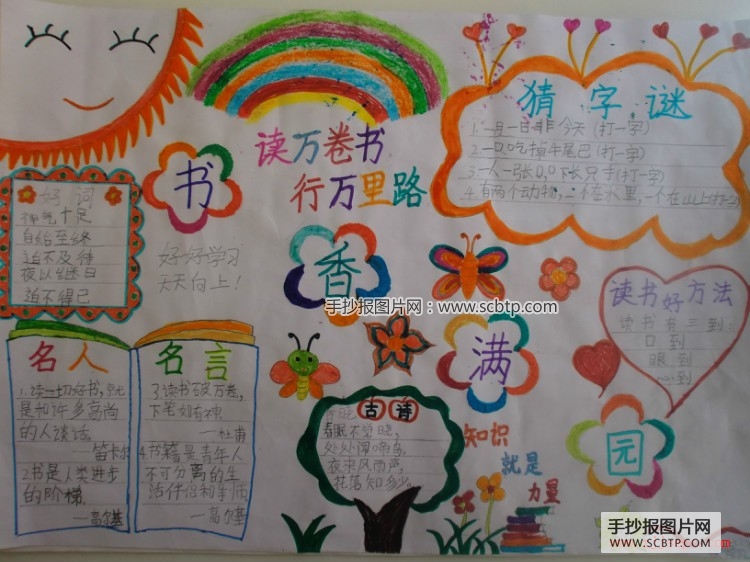 读万卷书
行万里路
猜字谜
1.一月一日非今天(打一字)
2.一口咬掉牛尾巴(打一字)
3.一人一张口,口下长只手(打一字)
4.有两个动物,一个在水里,一个在山上(打一字)
好词
神气十足
自始至终
迫不及待
夜以继日
迫不得已
书
香
满
园
好好学习
天天向上!
手抄报图片网:www.scbtp.com
读书好方法
读书有三到:
口到
眼到
心到
名人
1.读一切好书,就
是和许多高尚
的人谈话。
—笛卡尔
2书是人类进步
的阶梯.
—高尔基
名言
3.读书破万卷,
下笔如有神
—杜甫
4书籍是青年人
不可分离的生
活伴侣和导师
—高尔基
古诗
春晓
春眠不觉晓,
处处闻啼鸟.
夜来风雨声,
花落知多少。
知识
就是
力量
手抄报图片网
WWW.SCBTP.COM